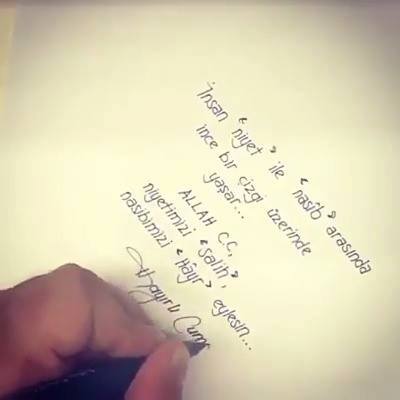 İnsan “niyet” ile “nasîb” arasında
ince bir çizgi üzerinde
yaşar...
ALLAH C.C,
niyetimizi “Salih”,
nasibimizi “Hâyır” eylesin...
Hayırlı Cum